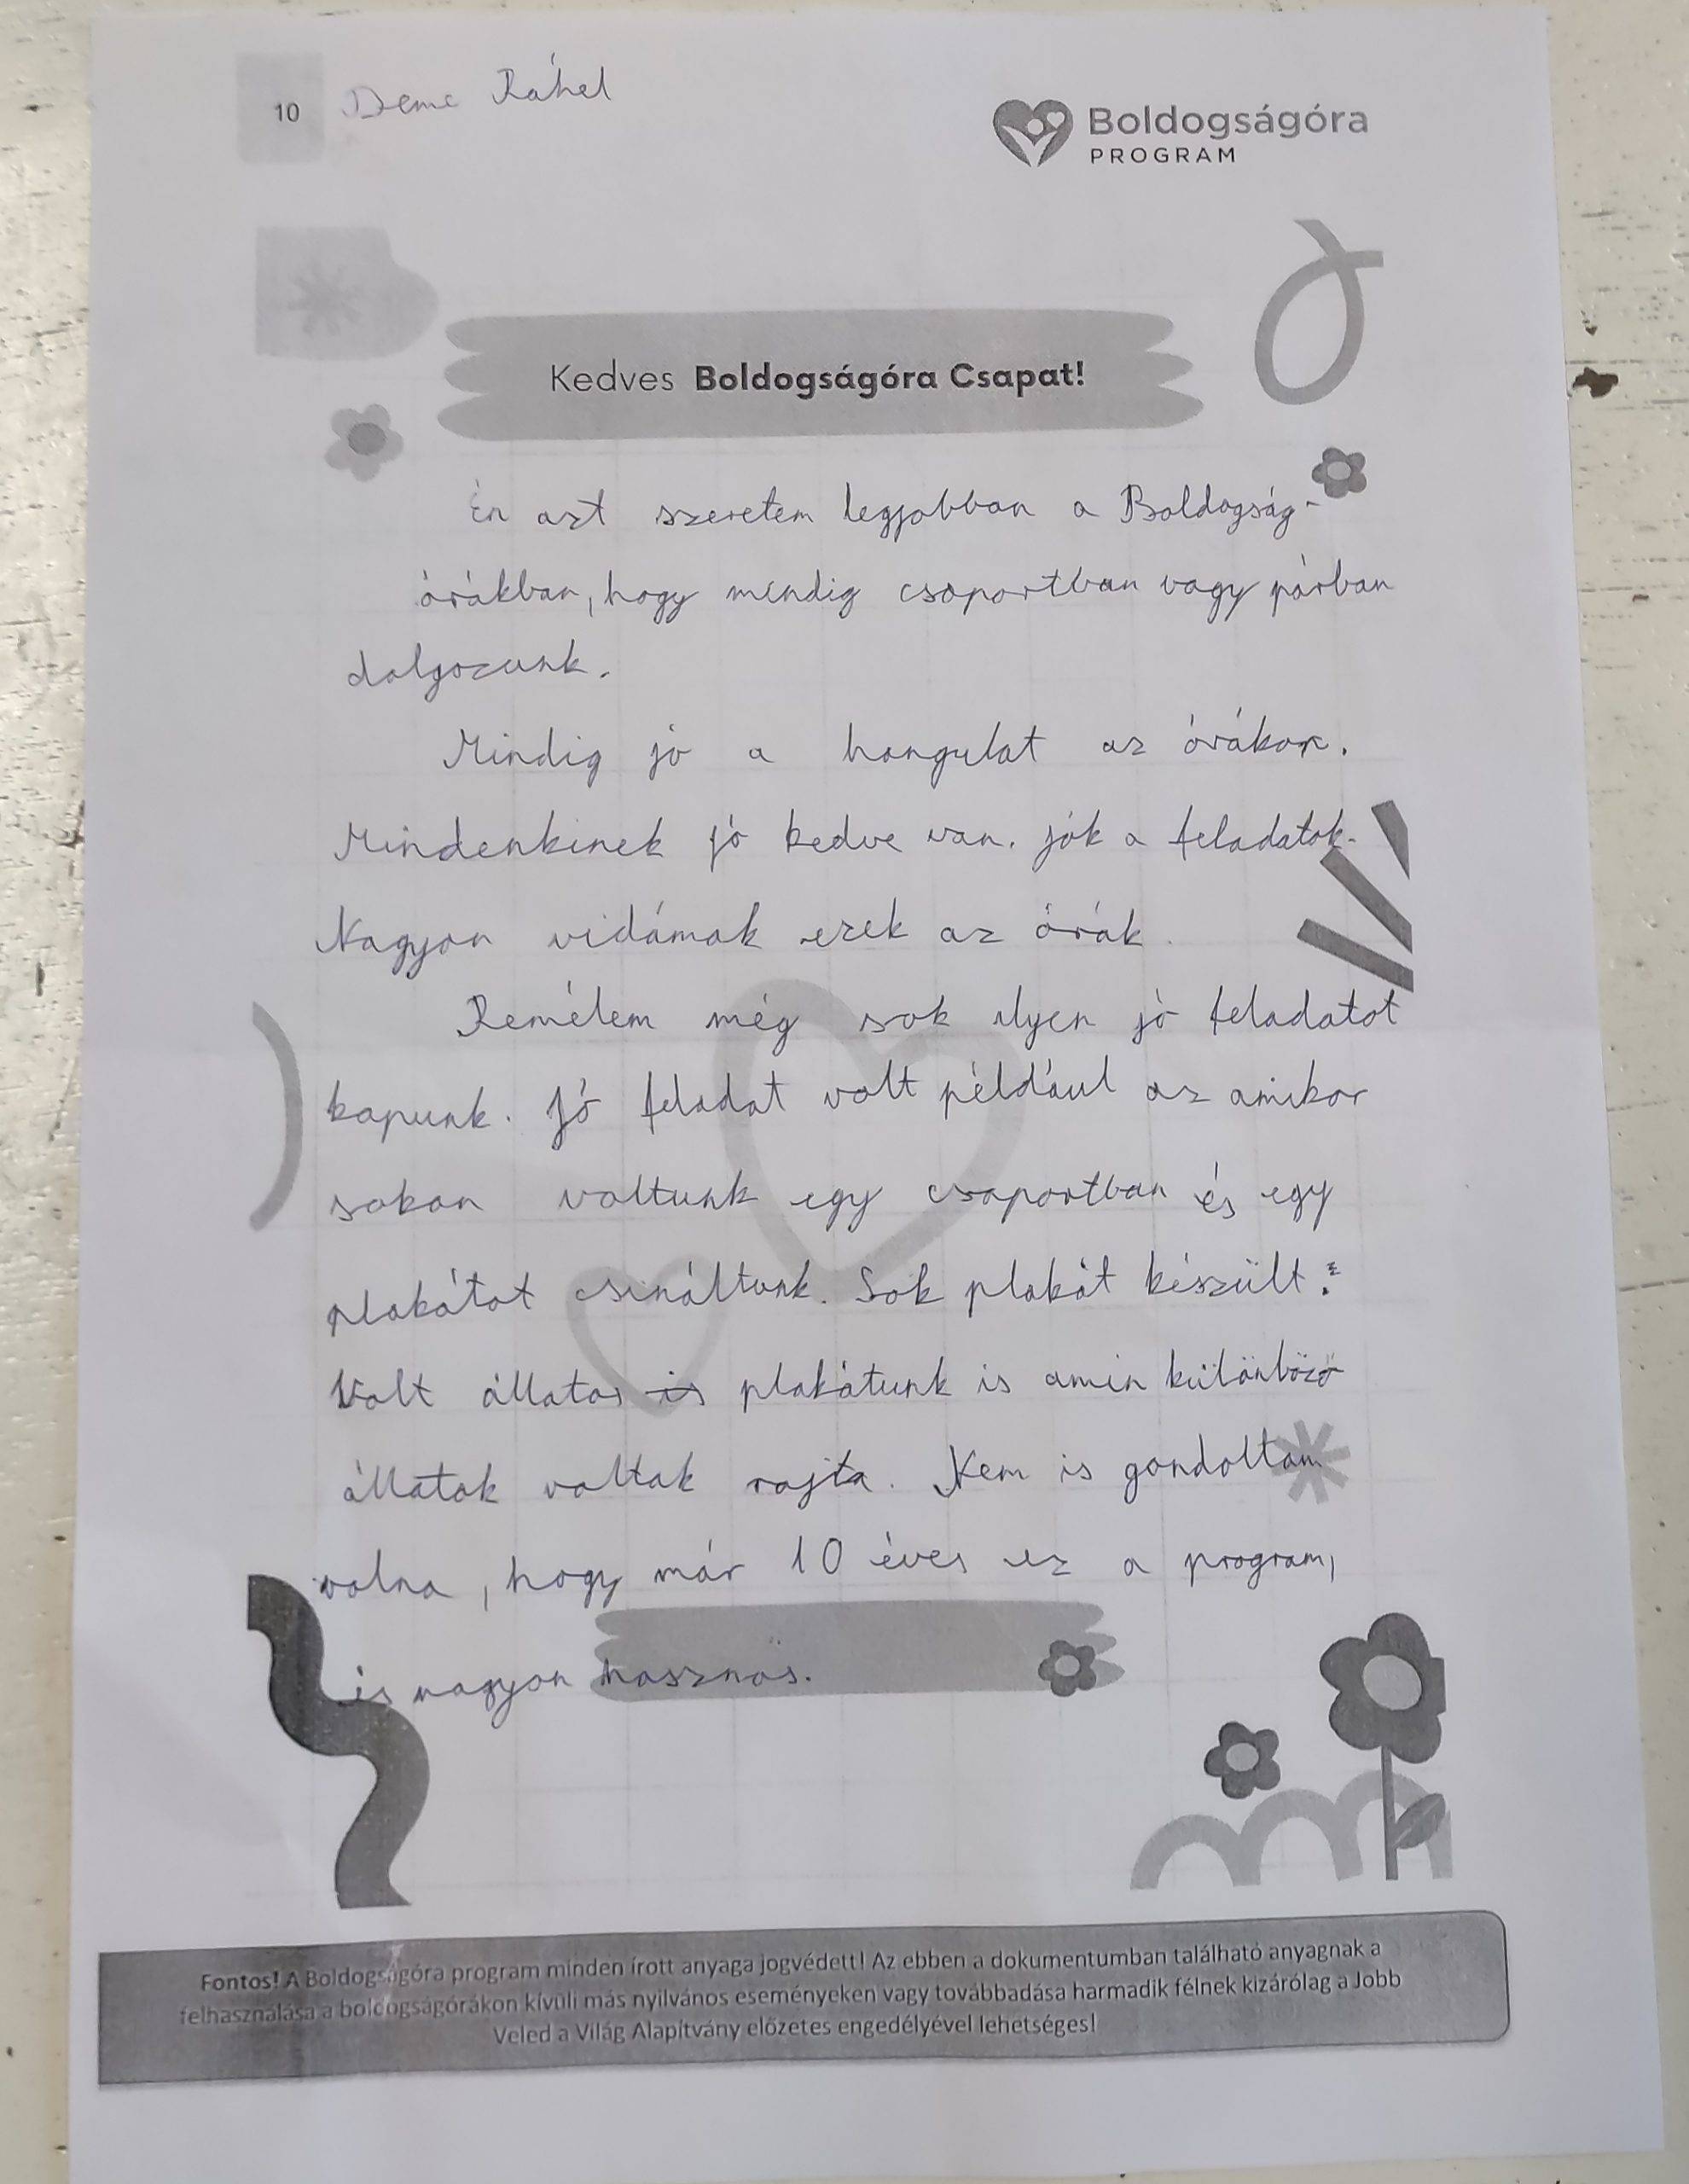 10
Deme Ráhel
Boldogságóra
PROGRAM
Kedves Boldogságóra Csapat!
Én azt szeretem legjobban a Boldogság-
órákban, hogy mindig csoportban vagy párban
dolgozunk.
Mindig jó a hangulat az órákon.
Mindenkinek jó kedve van. jók a feladatok.
Nagyon vidámak ezek az órák.
Remélem még sok ilyen jó feladatot
kapunk. Jó feladat volt például az amikor
sokan voltunk egy csoportban és egy
plakátot csináltunk. Sok plakát készült.
Volt állatos is plakátunk is amin különböző
állatok voltak rajta. Nem is gondoltam
volna, hogy már 10 éves ez a program,
és nagyon hasznos.
Fontos! A Boldogságóra program minden írott anyaga jogvédett! Az ebben a dokumentumban található anyagnak a
felhasználása a boldogságórákon kívüli más nyilvános eseményeken vagy továbbadása harmadik félnek kizárólag a Jobb
Veled a Világ Alapítvány előzetes engedélyével lehetséges!